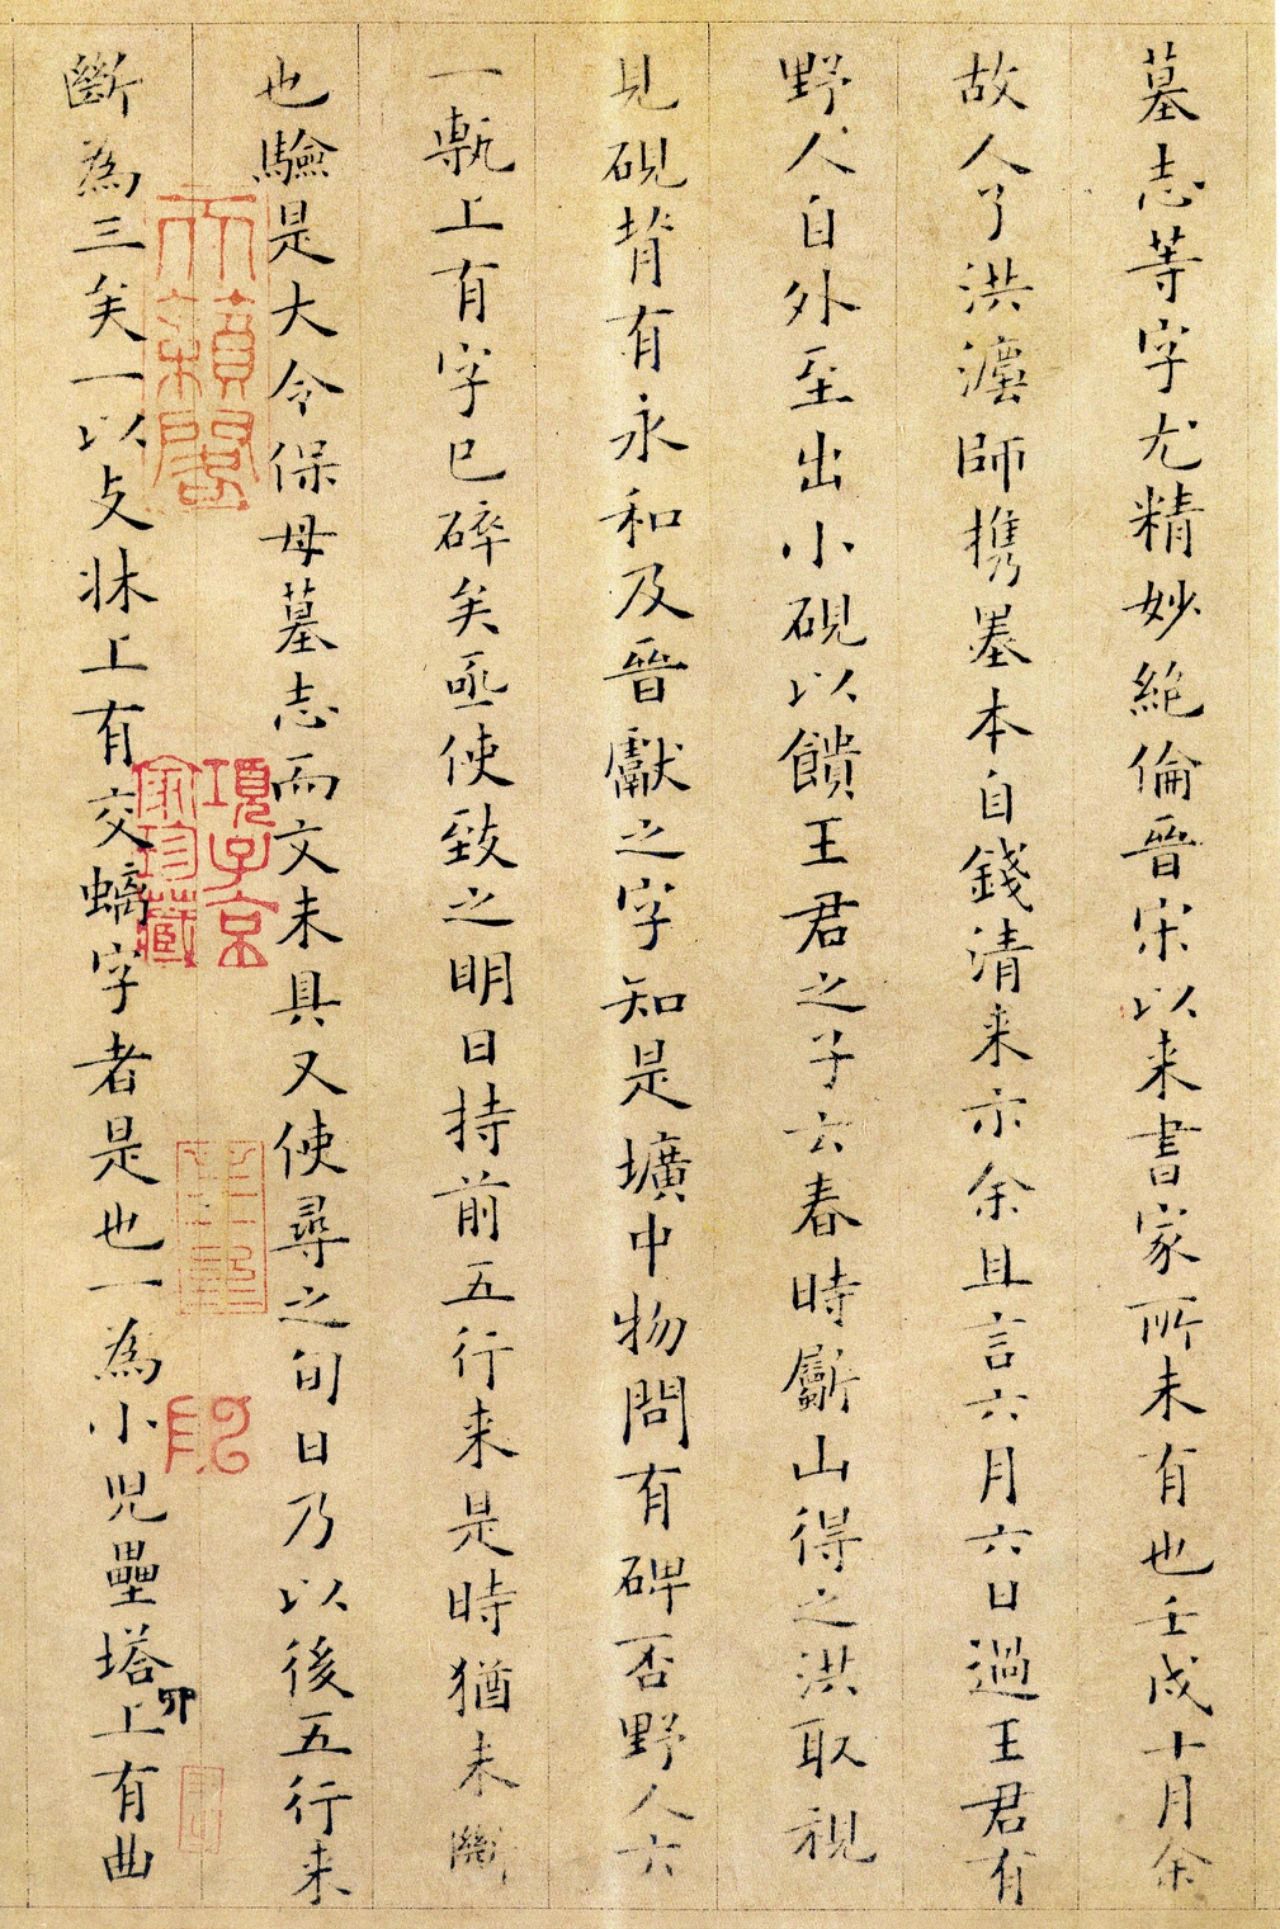 墓志等字尤精妙絶倫晉宋以来書家所未有也壬戌十月余
故人了洪灋師携墨本自錢清来示余且言六月六日過王君有
野人自外至出小硯以饋王君之子云春時斸山得之洪取視
見硯背有永和及晉獻之字知是壙中物問有碑否野人云
一塹上有字已碎矣亟使致之明日持前五行来是時猶未斷
也驗是大令保母墓志而文未具又使尋之旬日乃以後五行来
斷為三矣一以支牀上有交螭字者是也一為小児壘塔上有曲
天籟閣
項子京家珍藏
卯